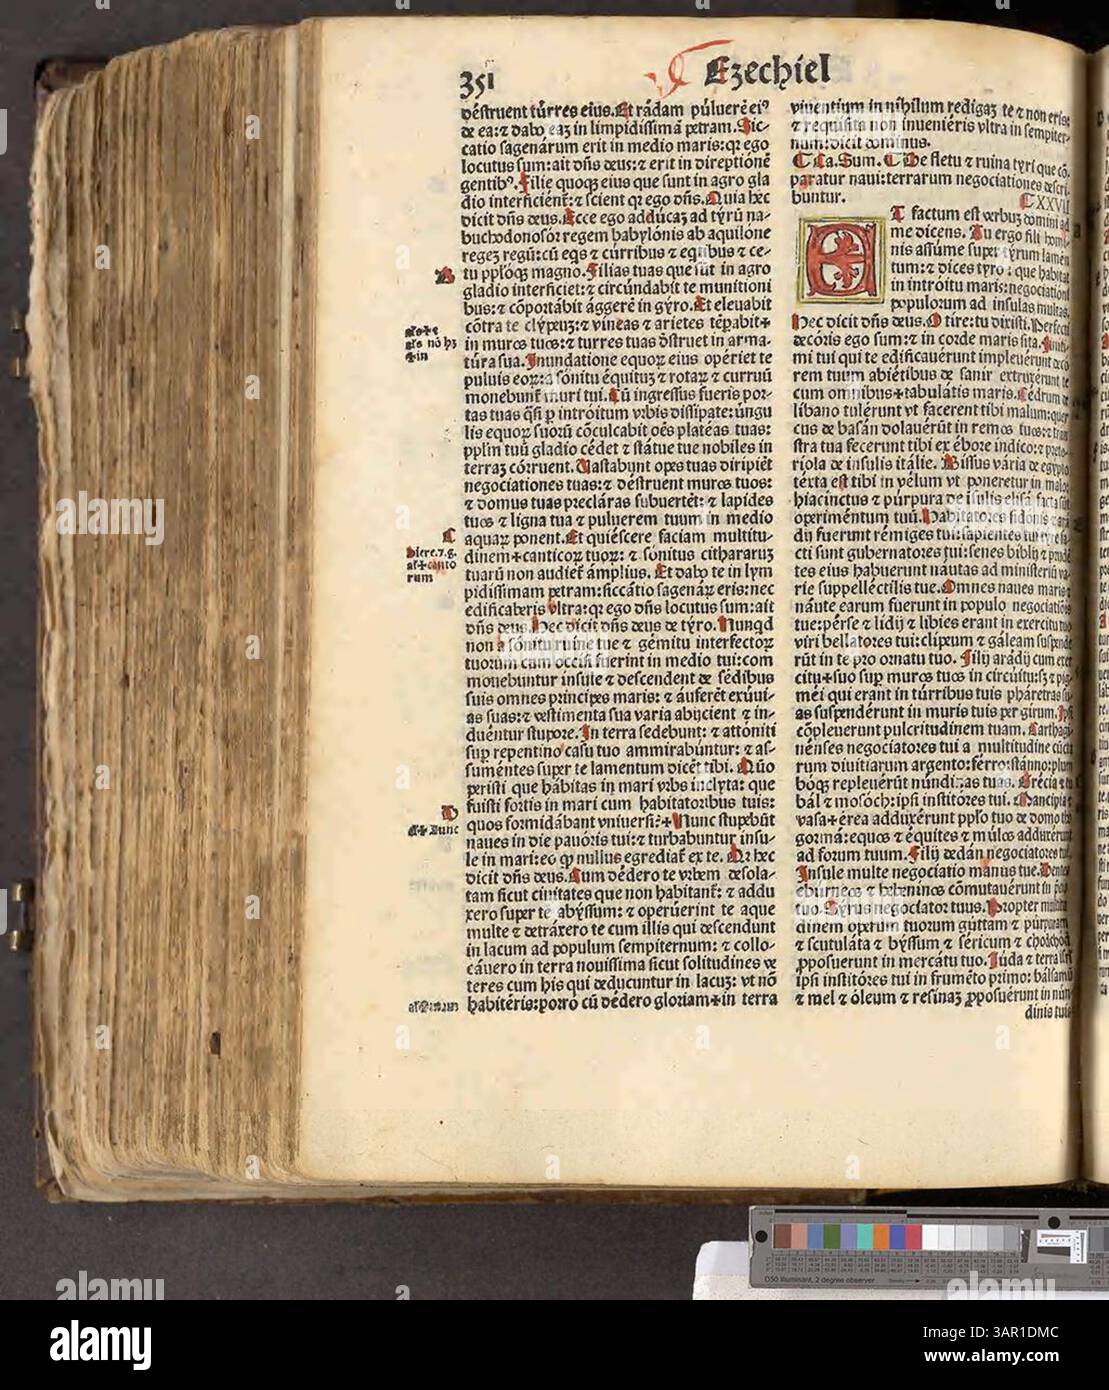 351
Ezechiel
déstruent túrres eius. Et rádam púluerē eiꝰ
de ea: ⁊ dabo eaꝫ in limpidissimā petram. Sic-
catio sagenárum erit in medio maris: qꝛ ego
locutus sum: ait dn̄s deus: ⁊ erit in direptionē
gentibꝰ. Filie quoqꝫ eius que sunt in agro gla
dio interficient̄: ⁊ scient qꝛ ego dn̄s. Quia hec
dicit dn̄s deus. Ecce ego addúcaꝫ ad tyrū na-
buchodonosór regem babylónis ab aquilóne
regeꝫ regū: cū eqs ⁊ cúrribus ⁊ eqtibus ⁊ ce-
tu pplóqꝫ magno. Filias tuas que sūt in agro
gladio interficiet: ⁊ circúndabit te munitioni
bus: ⁊ cōportábit ággerē in gyro. Et eleuabit
cōtra te clýpeuꝫ: ⁊ víneas ⁊ arietes tēpabit+
in muros tuos: ⁊ turres tuas dr̄struet in arma-
túra sua. Inundatione equoꝝ eius opériet te
puluis eoꝝ: a sónitu équituꝫ ⁊ rotaꝝ ⁊ curruū
monebunt̄ muri tui. Cū ingressus fueris por-
tas tuas q̄si p intróitum vrbis dissipate: úngu
lis equoꝝ suorū cōculcabit oēs platéas tuas:
pplm̄ tuū gladio cédet ⁊ státue tue nobiles in
terraꝫ córruent. Vastabunt opes tuas diripiēt
negociationes tuas: ⁊ déstruent muros tuos:
⁊ domus tuas preclāras subuertēt: ⁊ lapides
tuos ⁊ ligna tua ⁊ puluerem tuum in medio
aquaꝝ ponent. Et quiéscere faciam multitu-
dinem+canticoꝝ tuoꝝ: ⁊ sónitus cithararuꝫ
tuarū non audiet̄ ámplius. Et dabo te in lym
pidissimam petram: siccátio sagenáꝝ eris: nec
edificaberis vltra: qꝛ ego dn̄s locutus sum: ait
dn̄s deus. Hec dicit dn̄s deus de týro. Nunqd
non a sónitu ruine tue ⁊ gémitu interfectoꝝ
tuorum cum occisi fuerint in medio tui: com
mouebuntur insule ⁊ descendent de sédibus
suis omnes principes maris: ⁊ áuferēt exúui-
as suas: ⁊ vestimenta sua varia abijcient ⁊ in-
duéntur stupore. In terra sedebunt: ⁊ attóniti
sup̱ repentino casu tuo ammirabúntur: ⁊ as-
suméntes super te lamentum dicēt tibi. Quō
peristi que hábitas in mari vrbs inclyta: que
fuisti fortis in mari cum habitatoribus tuis:
quos formidábant vniuersi?+Nunc stupebūt
naues in die pauóris tui: ⁊ turbabuntur insu-
le in mari: eo qp nullus egrediat̄ ex te. Qꝛ hec
dicit dn̄s deus. Cum dédero te vrbem desola-
tam sicut ciuitates que non habitant̄: ⁊ addu
xero super te abýssum: ⁊ operúerint te aque
multe ⁊ detráxero te cum illis qui descendunt
in lacum ad populum sempiternum: ⁊ collo-
cáuero in terra nouissima sicut solitudines ve
teres cum his qui deducuntur in lacuꝫ: vt nō
habitéris: porro cū dédero gloriam+in terra
B
als+⁊
als nō hꝫ
+in
C
Hiere.7.g.
als+canto
rum
D
als+Nunc
viuentium in nihilum redigaꝫ te ⁊ non eris:
⁊ requisita non inueniéris vltra in sempiter-
num: dicit dominus.
¶ Ca. Sum. ¶ De fletu ⁊ ruina tyri que cō
paratur naui: terrarum negociationes descri
buntur.
¶XXVII
ET factum est verbuꝫ domini ad
me dicens. Tu ergo fili homi-
nis assúme super tyrum lamen
tum: ⁊ dices tyro: que habitat
in intróitu maris: negociationi
populorum ad insulas multas.
Hec dicit dn̄s deus. O tire: tu dixisti. Perfecti
decóris ego sum: ⁊ in corde maris sita. Finiti-
mi tui qui te edificauérunt impleuérunt decō
rem tuum abiétibus de sanir extruxérunt te
cum omnibus+tabulátis maris. Cédrum de
libano tulérunt vt facerent tibi malum: quer
cus de basán dolauérūt in remos tuos: ⁊ tran
stra tua fecerunt tibi ex ébore indico: ⁊ preto-
riola de insulis itálie. Bissus vária de egypto
téxta est tibi in vélum vt poneretur in malo:
hiacinctus ⁊ púrpura de īsulis elisa facta sūt
operiméntum tuū. Habitatores sidónis ⁊ ará
dij fuerunt rémiges tui: sapientes tui tyre fa-
cti sunt gubernatores tui: senes biblij ⁊ prudē
tes eius habuerunt náutas ad ministeriū va-
rie suppelléctilis tue. Omnes naues maris ⁊
náute earum fuerunt in populo negociatiōis
tue: pérse ⁊ lidij ⁊ libies erant in exercitu tuo
viri bellatores tui: clipeum ⁊ gáleam suspende
rūt in te pro ornatu tuo. Filij arádij cum exer
citu+suo sup̱ muros tuos in circúitu: sꝫ ⁊ pig-
méi qui erant in túrribus tuis pháretras su-
as suspendérunt in muris tuis per girum. Ipsi
cōpleuerunt pulcritudinem tuam. Carthagi-
nénses negociatores tui a multitudine cūcta
rum diuitiarum argento: ferro: stánno: plum
bóqꝫ repleuérūt núndinas tuas. Grécia ⁊ tu
bál ⁊ mosóch: ipsi institóres tui. Mancipia ⁊
vasa+érea adduxérunt pplo tuo de domo tho
gorma: equos ⁊ équites ⁊ múlos adduxérunt
ad forum tuum. Filij dedán negociatores tui.
Insule multe negociatio manus tue. Dentes
ebúrneos ⁊ hebeninos cōmutauérunt in p̄cio
tuo. Syrus negociator tuus. Propter multitu
dinem operum tuorum gúttam ⁊ púrpuram
⁊ scutuláta ⁊ býssum ⁊ séricum ⁊ chodchod
ꝓposuerunt in mercátu tuo. Iuda ⁊ terra isrl̄
ipsi institóres tui in fruméto primo: bálsamū
⁊ mel ⁊ óleum ⁊ resinaꝫ ꝓposuérunt in nún
dinis tuis
D50 Illuminant, 2 degree observer
Density
alamy
Image ID: 3AR1DMC
www.alamy.com